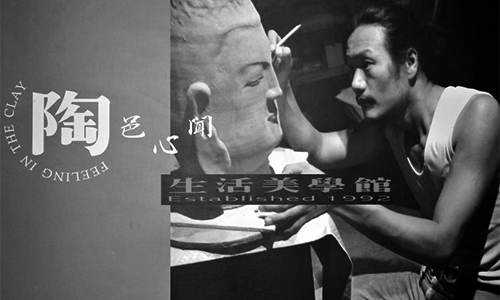 FEELING IN THE CLAY
陶
邑心聞
生活美學館
Established 1992